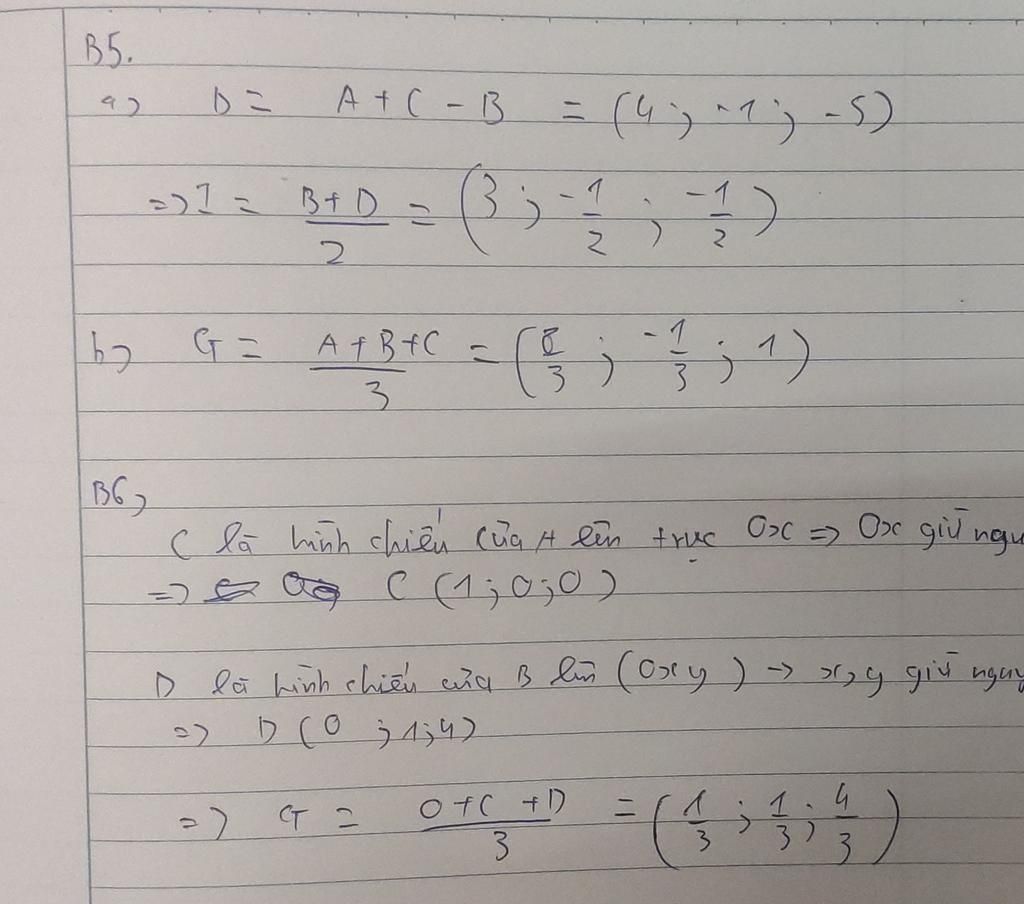 B5.
a) D = A + C - B = (4; -1; -5)
=> I = B+D / 2 = (3; -1/2; -1/2)
b) G = A+B+C / 3 = (8/3; -1/3; 1)
B6)
C là hình chiếu của A lên trục Ox => Ox giữ ngu
=> C (1; 0; 0)
D là hình chiếu của B lên (Oxy) -> x, y giữ nguy
=> D (0; 1; 4)
=> G = O+C+D / 3 = (1/3; 1/3; 4/3)